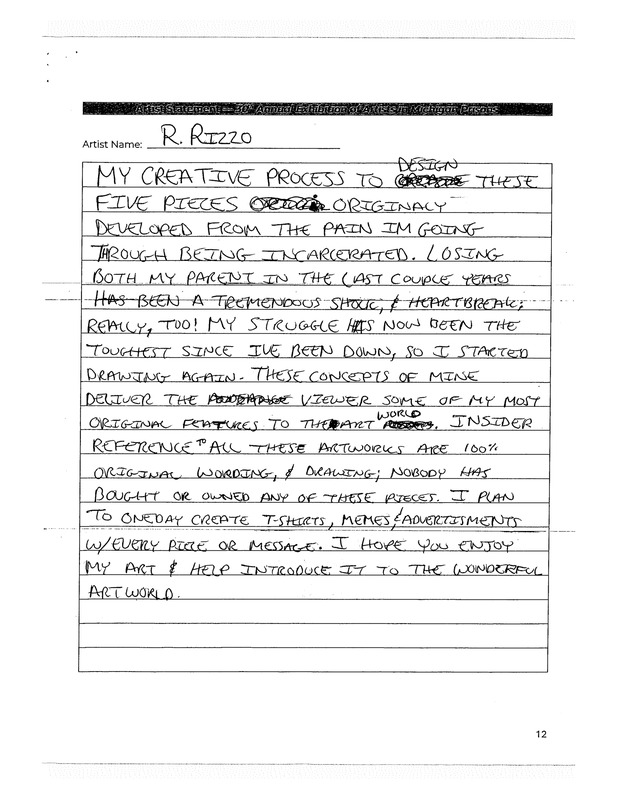 Artist Statement – 30th Annual Exhibition of Artists in Michigan Prisons
Artist Name: R. RIZZO
DESIGN
MY CREATIVE PROCESS TO THESE
FIVE PIECES ORIGINALY
DEVELOPED FROM THE PAIN IM GOING
THROUGH BEING INCARCERATED. LOSING
BOTH MY PARENT IN THE LAST COUPLE YEARS
HAS BEEN A TREMENDOUS SHOCK, & HEARTBREAK;
REALLY, TOO! MY STRUGGLE HAS NOW BEEN THE
TOUGHEST SINCE IVE BEEN DOWN, SO I STARTED
DRAWING AGAIN. THESE CONCEPTS OF MINE
DELIVER THE VIEWER SOME OF MY MOST
WORLD
ORIGINAL FEATURES TO THE ART . INSIDER
REFERENCE TO ALL THESE ARTWORKS ARE 100%
ORIGINAL WORDING, & DRAWING; NOBODY HAS
BOUGHT OR OWNED ANY OF THESE PIECES. I PLAN
TO ONEDAY CREATE T-SHIRTS, MEMES & ADVERTISMENTS
W/EVERY PIECE OR MESSAGE. I HOPE YOU ENJOY
MY ART & HELP INTRODUCE IT TO THE WONDERFUL
ART WORLD.
12